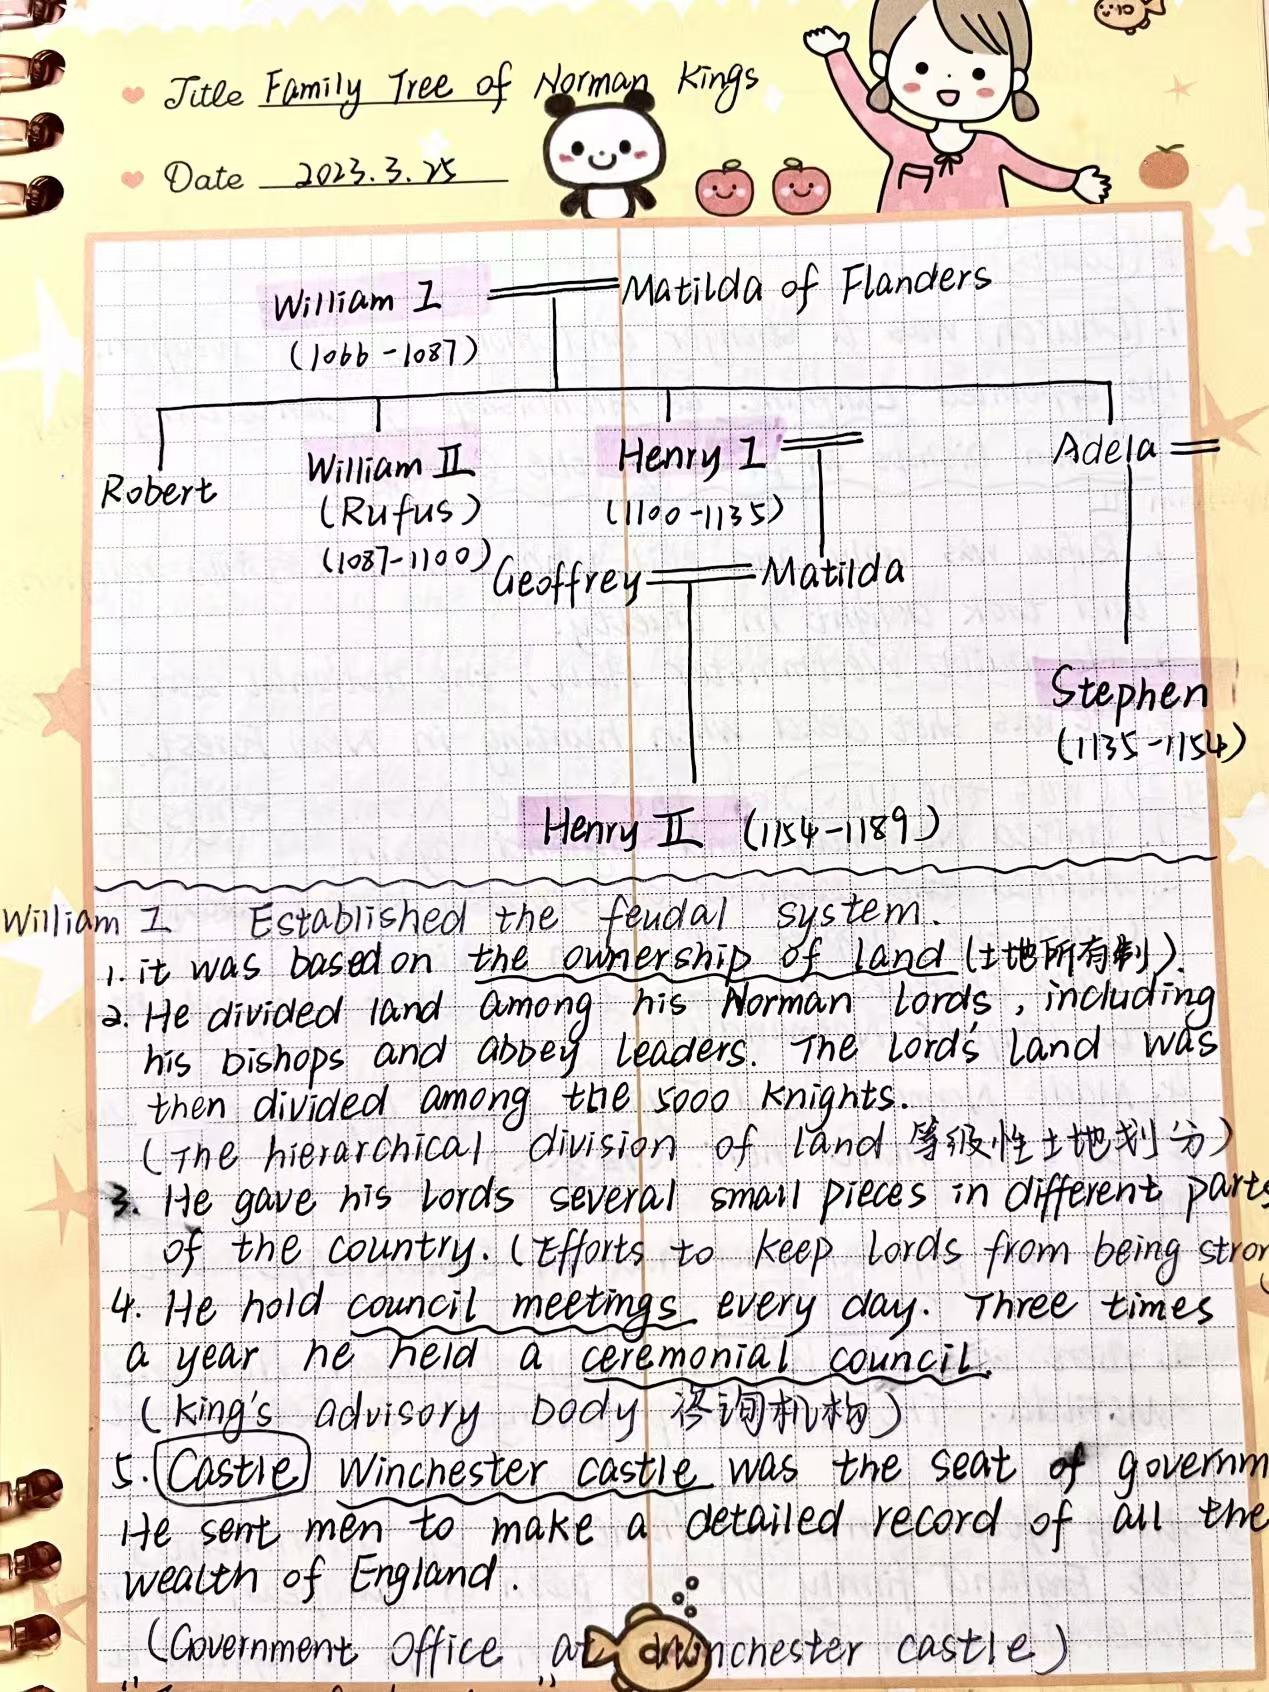 Title Family Tree of Norman Kings
Date 2023.3.25
William I Matilda of Flanders
(1066-1087)
Robert
William II
(Rufus)
(1087-1100)
Henry I
(1100-1135)
Adela
Geoffrey Matilda
Stephen
(1135-1154)
Henry II (1154-1189)
William I Established the feudal system.
1. it was based on the ownership of land (土地所有制).
2. He divided land among his Norman Lords, including
his bishops and abbey leaders. The Lord's land was
then divided among the 5000 knights.
(The hierarchical division of land 等级性土地划分)
3. He gave his Lords several small pieces in different parts
of the country. (Efforts to keep lords from being stron
4. He hold council meetings every day. Three times
a year he held a ceremonial council.
(King's advisory body 咨询机构)
5. Castle Winchester castle was the seat of governm
He sent men to make a detailed record of all the
wealth of England.
(Government Office at Winchester castle)